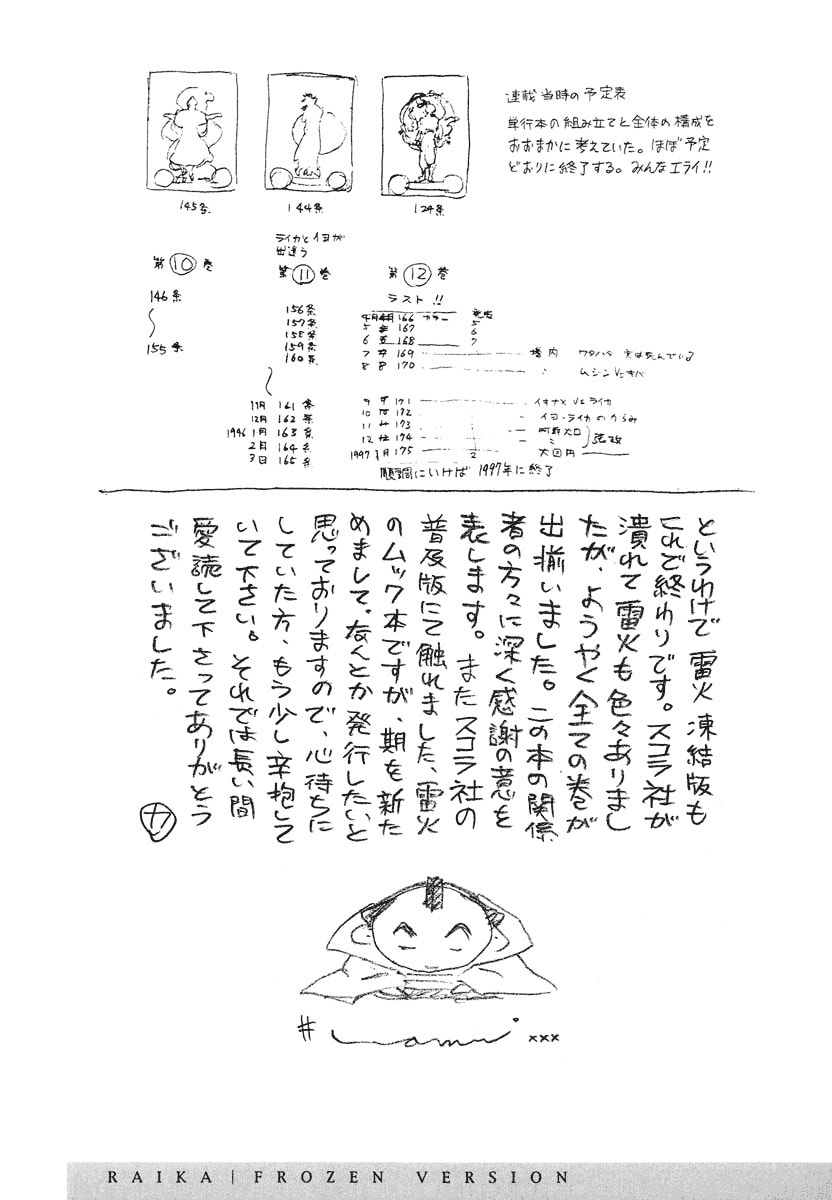 連載当時の予定表
単行本の組み立てと全体の構成を
おおまかに考えていた。ほぼ予定
どおりに終了する。みんなエライ!!
145条
144条
124条
第10巻
146条
155条
ライカとイヨが
出逢う
第11巻
156条
157条
158条
159条
160条
11月 161条
12月 162条
1996 1月 163条
2月 164条
3月 165条
第12巻
ラスト!!
4月 166 カラー
5 167 5
6 168 6
7 169 塔内
8 170 ムジンVS
9 171 VSライカ
10 172 イヨ・ライカのからみ
11 173
12 174
1997 1月 175 2 大団円
順調にいけば 1997年に終了
というわけで 雷火 凍結版も
これで終わりです。スコラ社が
潰れて雷火も色々ありまし
たが、ようやく全ての巻が
出揃いました。この本の関係
者の方々に深く感謝の意を
表します。またスコラ社の
普及版にて触れました、雷火
のムック本ですが、期を新た
めまして。なんとか発行したいと
思っておりますので、心待ちに
していた方、もう少し辛抱して
いて下さい。それでは長い間
愛読して下さってありがとう
ございました。
xxx
RAIKA | FROZEN VERSION